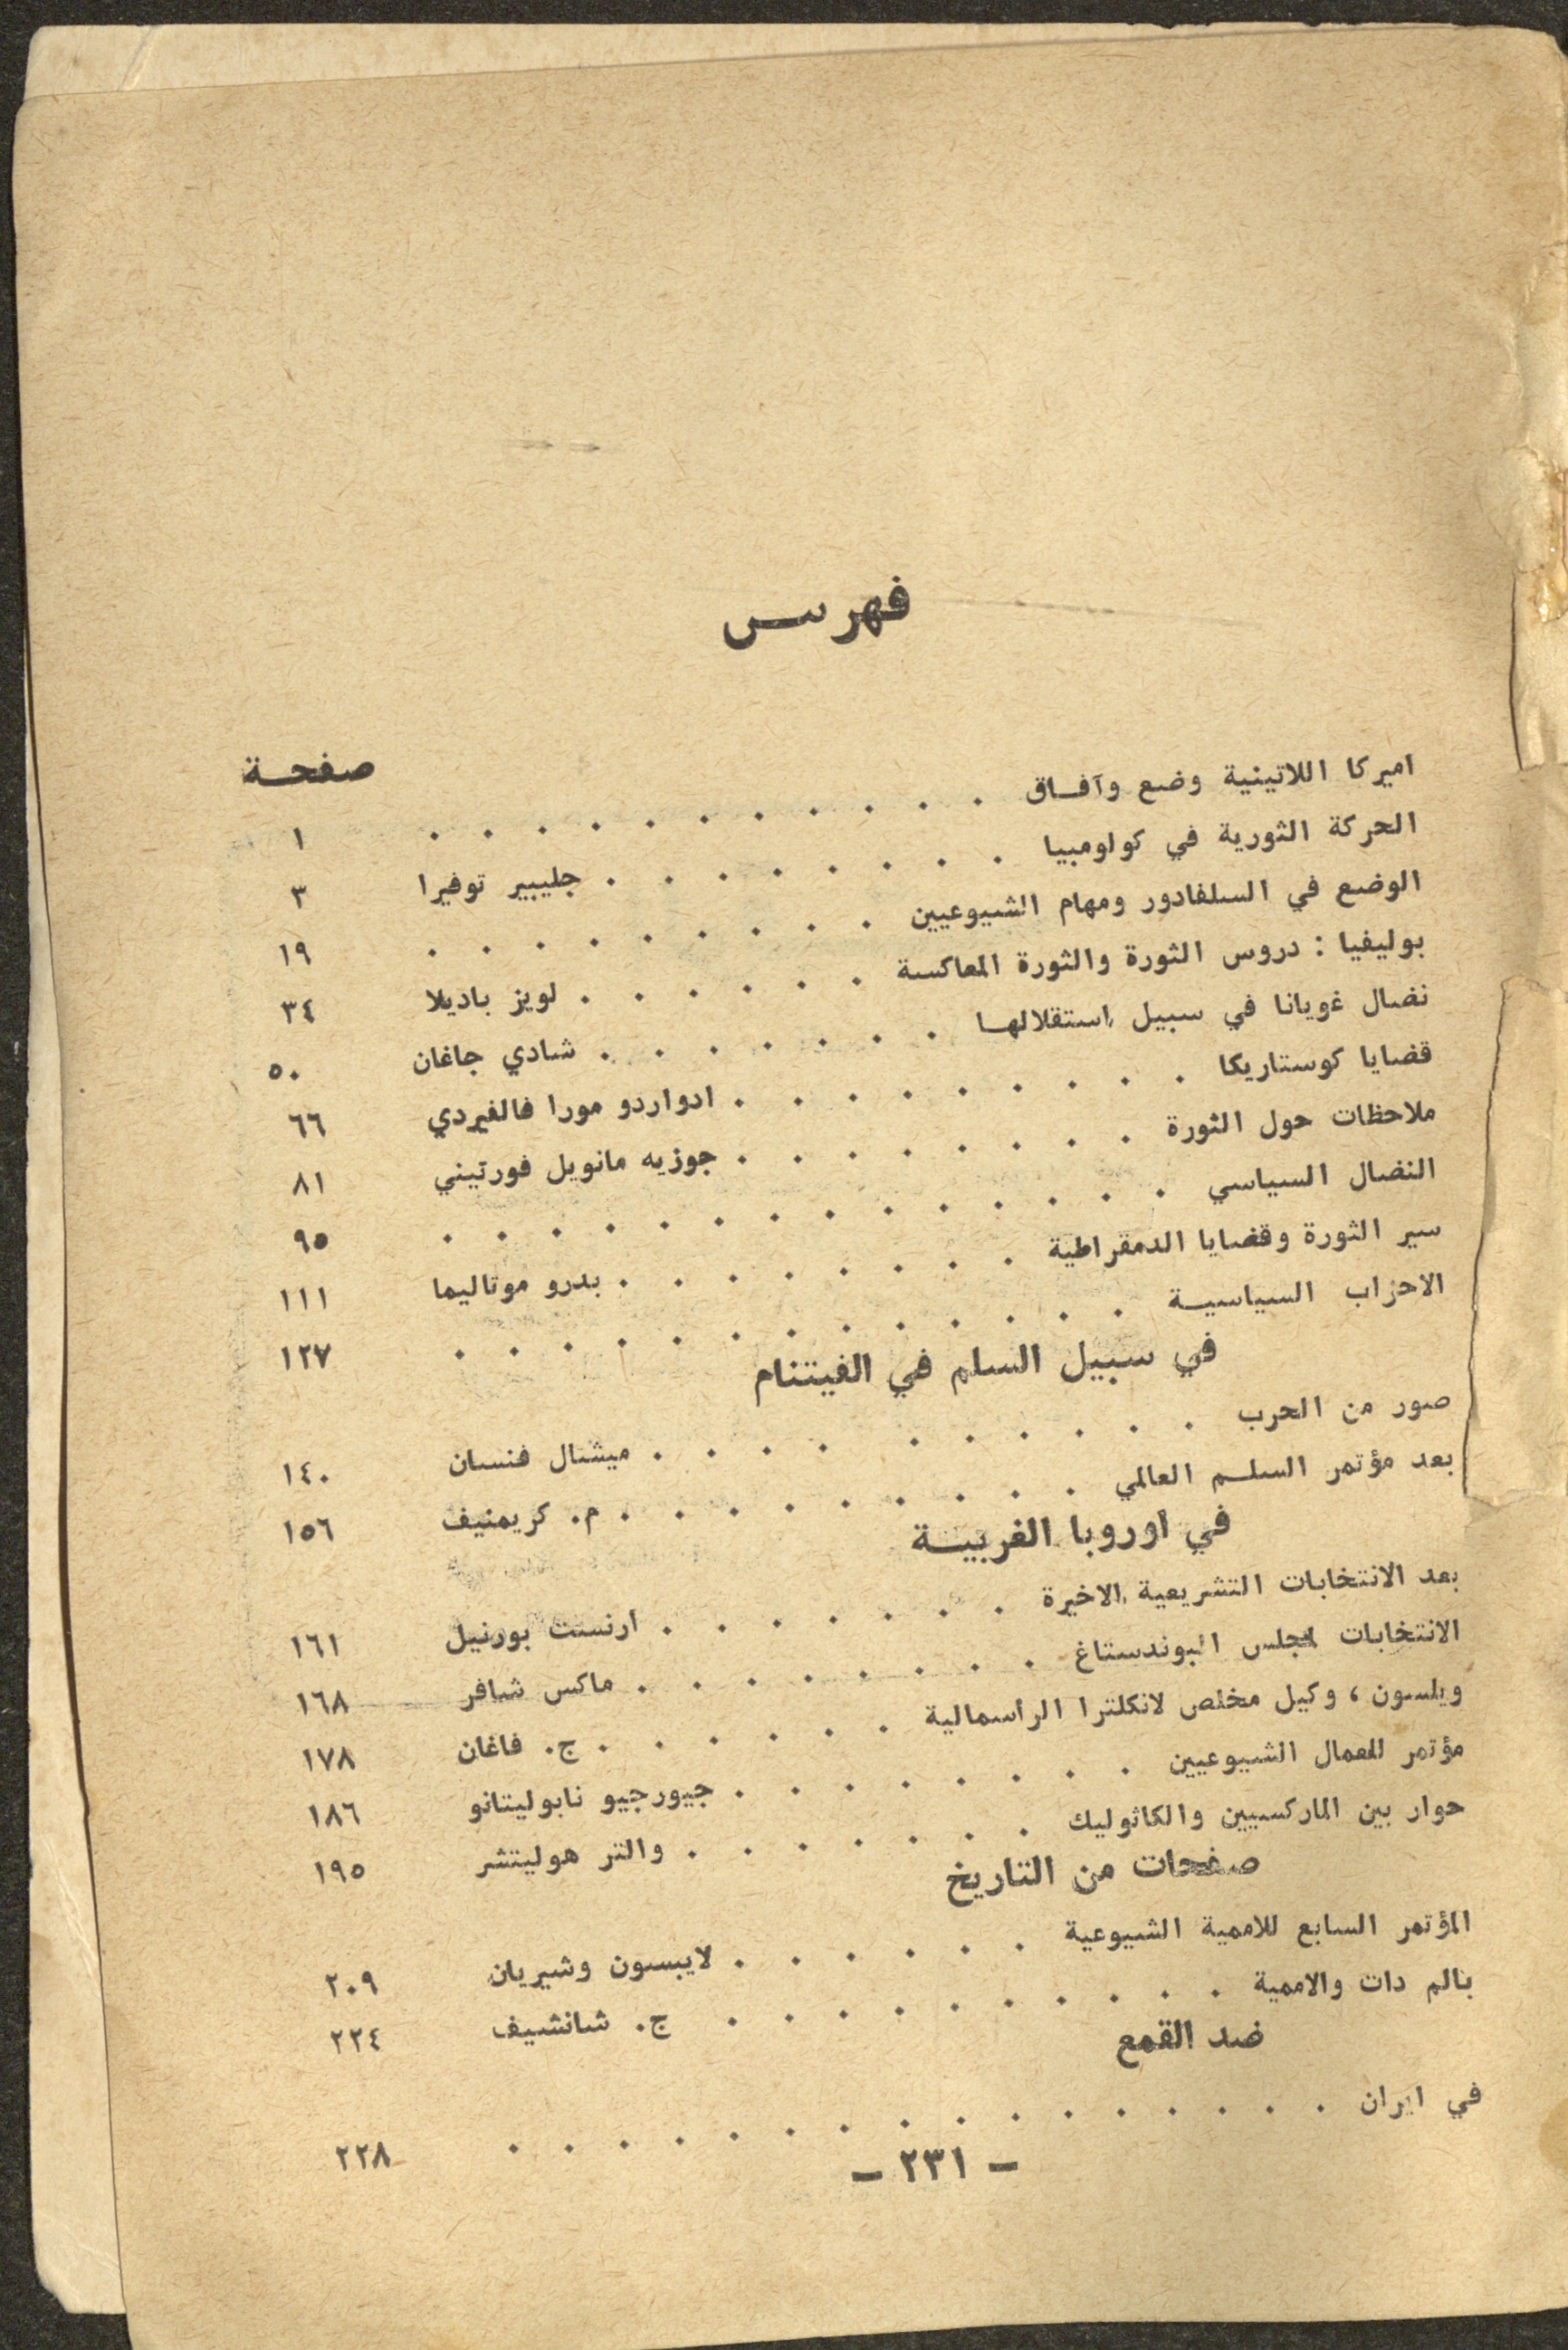 فهرس
صفحة
اميركا اللاتينية وضع وآفاق . . . . . . . . . . . ١
الحركة الثورية في كولومبيا . . . . . . . . جليبير توفيرا ٣
الوضع في السلفادور ومهام الشيوعيين . . . . . . . . . ١٩
بوليفيا : دروس الثورة والثورة المعاكسة . . . . . . لويز باديلا ٣٤
نضال غويانا في سبيل استقلالها . . . . . . . شادي جاغان ٥٠
قضايا كوستاريكا . . . . . . . . . ادواردو مورا فالفيردي ٦٦
ملاحظات حول الثورة . . . . . . . . جوزيه مانويل فورتيني ٨١
النضال السياسي . . . . . . . . . . . . . . ٩٥
سير الثورة وقضايا الدمقراطية . . . . . . . . بدرو موتاليما ١١١
الاحزاب السياسية . . . . . . . . . . . . . ١٢٧
في سبيل السلم في الفيتنام
صور من الحرب . . . . . . . . . . ميشال فنسان ١٤٠
بعد مؤتمر السلم العالمي . . . . . . . . . م. كريمنيف ١٥٦
في اوروبا الغربية
بعد الانتخابات التشريعية الاخيرة . . . . . . . ارنست بورنيل ١٦١
الانتخابات لمجلس البوندستاغ . . . . . . . . ماكس شافر ١٦٨
ويلسون، وكيل مخلص لانكلترا الرأسمالية . . . . . . ج. فاغان ١٧٨
مؤتمر للعمال الشيوعيين . . . . . . . . جيورجيو نابوليتانو ١٨٦
حوار بين الماركسيين والكاثوليك . . . . . . . والتر هوليتشر ١٩٥
صفحات من التاريخ
المؤتمر السابع للاممية الشيوعية . . . . . . لايبسون وشيريان ٢٠٩
بالم دات والاممية . . . . . . . . . . ج. شانشيف ٢٢٤
ضد القمع
في ايران . . . . . . . . . . . . . . . . ٢٢٨
- ٢٣١ -